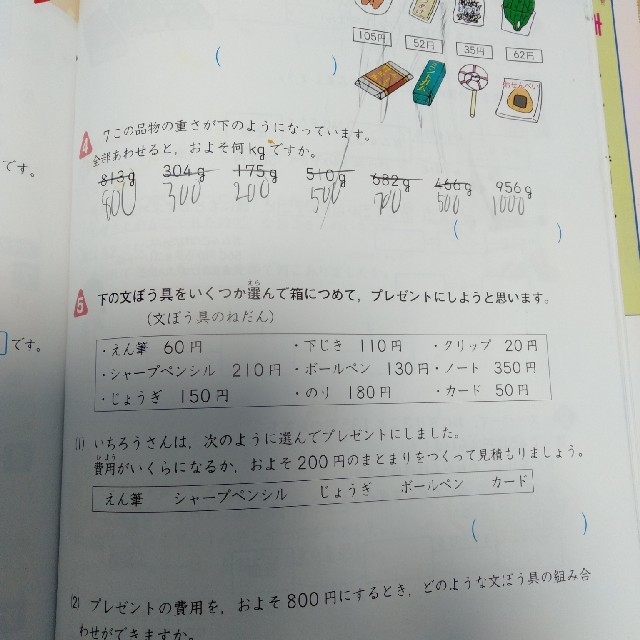 105円 52円 35円 62円
おせんべい
です。
4 7この品物の重さが下のようになっています。
全部あわせると，およそ何kgですか。
813g 304g 175g 510g 682g 466g 956g
800 300 200 500 700 500 1000
( )
5 下の文ぼう具をいくつか選んで箱につめて，プレゼントにしようと思います。
えら
(文ぼう具のねだん)
・えん筆 60円 ・下じき 110円 ・クリップ 20円
・シャープペンシル 210円 ・ボールペン 130円 ・ノート 350円
・じょうぎ 150円 ・のり 180円 ・カード 50円
です。
(1) いちろうさんは，次のように選んでプレゼントにしました。
ひよう
費用がいくらになるか，およそ200円のまとまりをつくって見積もりましょう。
えん筆 シャープペンシル じょうぎ ボールペン カード
( )
(2) プレゼントの費用を，およそ800円にするとき，どのような文ぼう具の組み合
わせができますか。